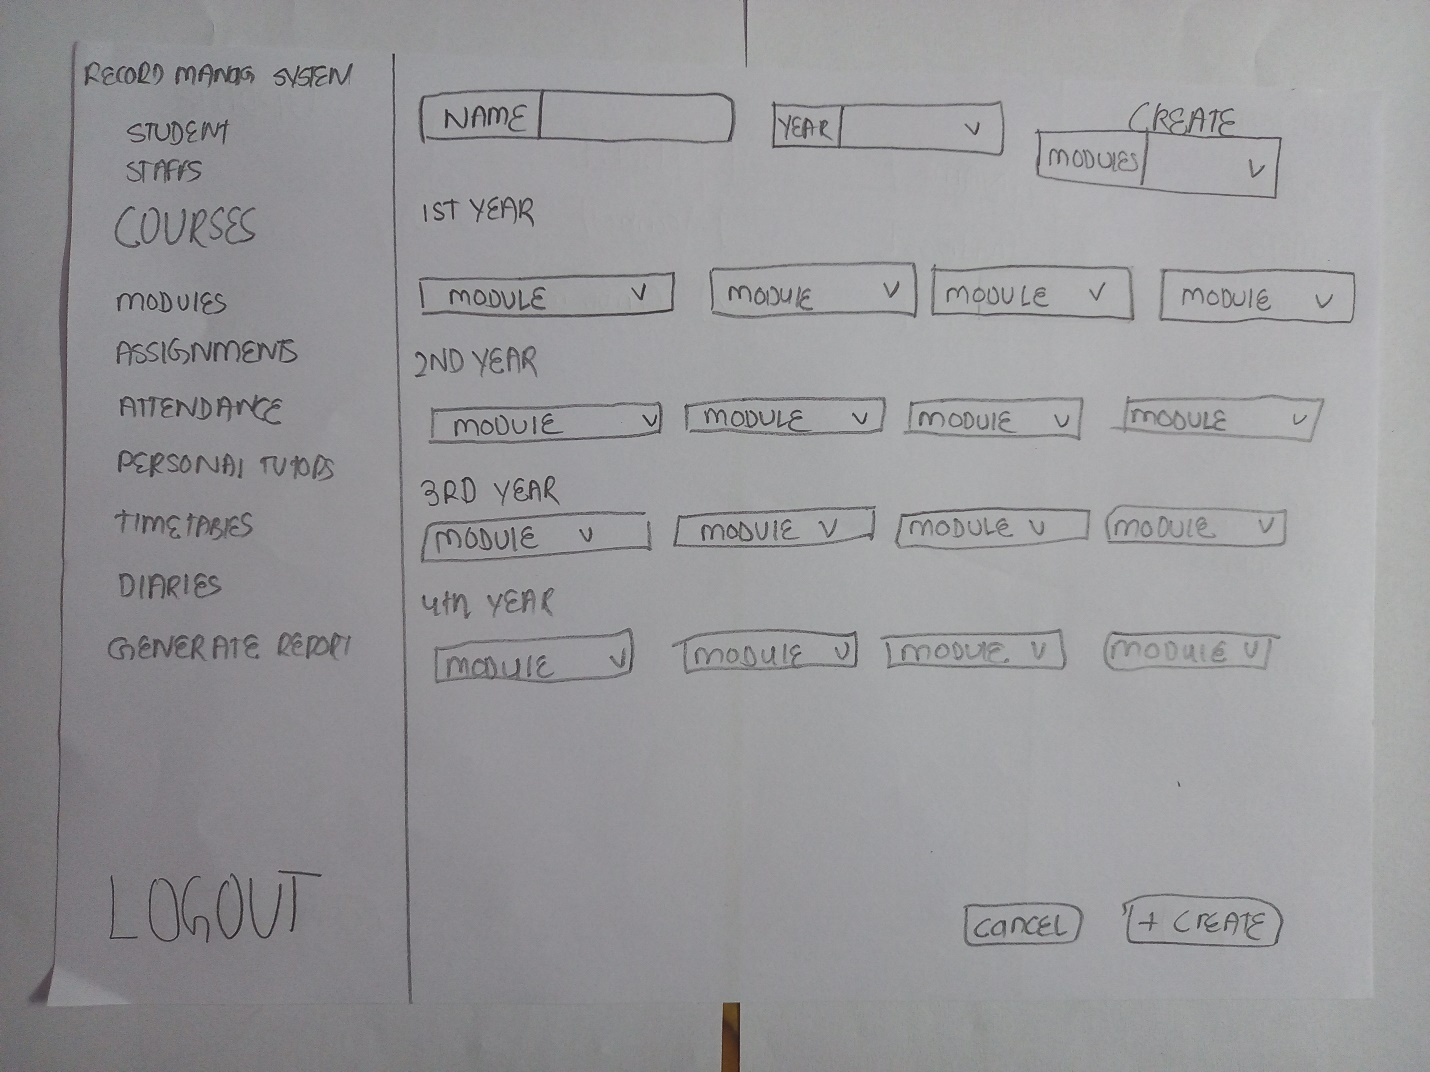 RECORD MANAG SYSTEM
STUDENT
STAFFS
COURSES
MODULES
ASSIGNMENTS
ATTENDANCE
PERSONAL TUTORS
TIMETABLES
DIARIES
GENERATE REPORT
LOGOUT
NAME YEAR V CREATE
MODULES V
1ST YEAR
MODULE V MODULE V MODULE V MODULE V
2ND YEAR
MODULE V MODULE V MODULE V MODULE V
3RD YEAR
MODULE V MODULE V MODULE V MODULE V
4th YEAR
MODULE V MODULE V MODULE V MODULE V
CANCEL + CREATE